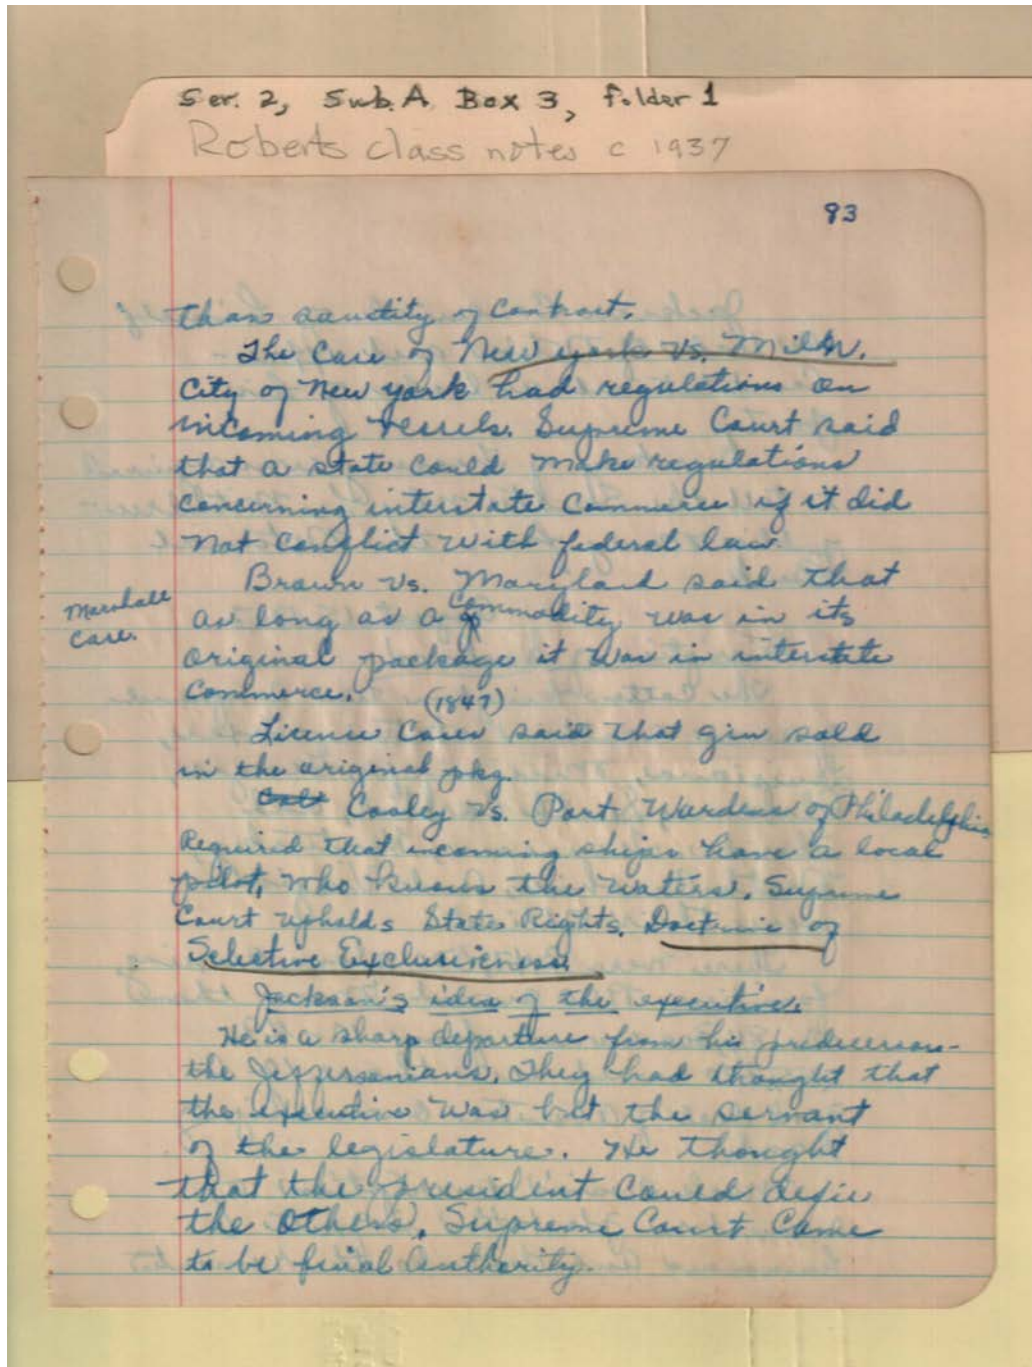 Ser. 2, Sub. A Box 3, folder 1
Roberts class notes c 1937
93
than sanctity of Contract.
The Case of New York vs. Miln.
City of New York had regulations on
incoming vessels. Supreme Court said
that a state could make regulations
concerning interstate Commerce if it did
not conflict with federal law.
Brown vs. Maryland said that
Marshall
Case.
as long as a commodity was in its
original package it was in interstate
Commerce.
(1847)
License Cases said that gin sold
in the original pkg.
Cooley vs. Port Wardens of Philadelphia
Required that incoming ships have a local
pilot, who knows the waters. Supreme
Court upholds State Rights. Doctrine of
Selective Exclusiveness
Jackson's idea of the executive.
He is a sharp departure from his predecessors-
the Jeffersonians. They had thought that
the executive was but the servant
of the legislature. He thought
that the president could defie
the others. Supreme Court came
to be final authority.